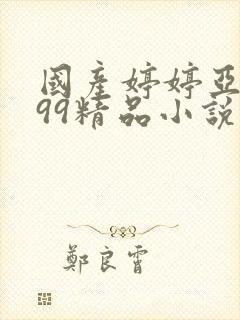 國產婷婷亞
99精品小說
鄭良霄